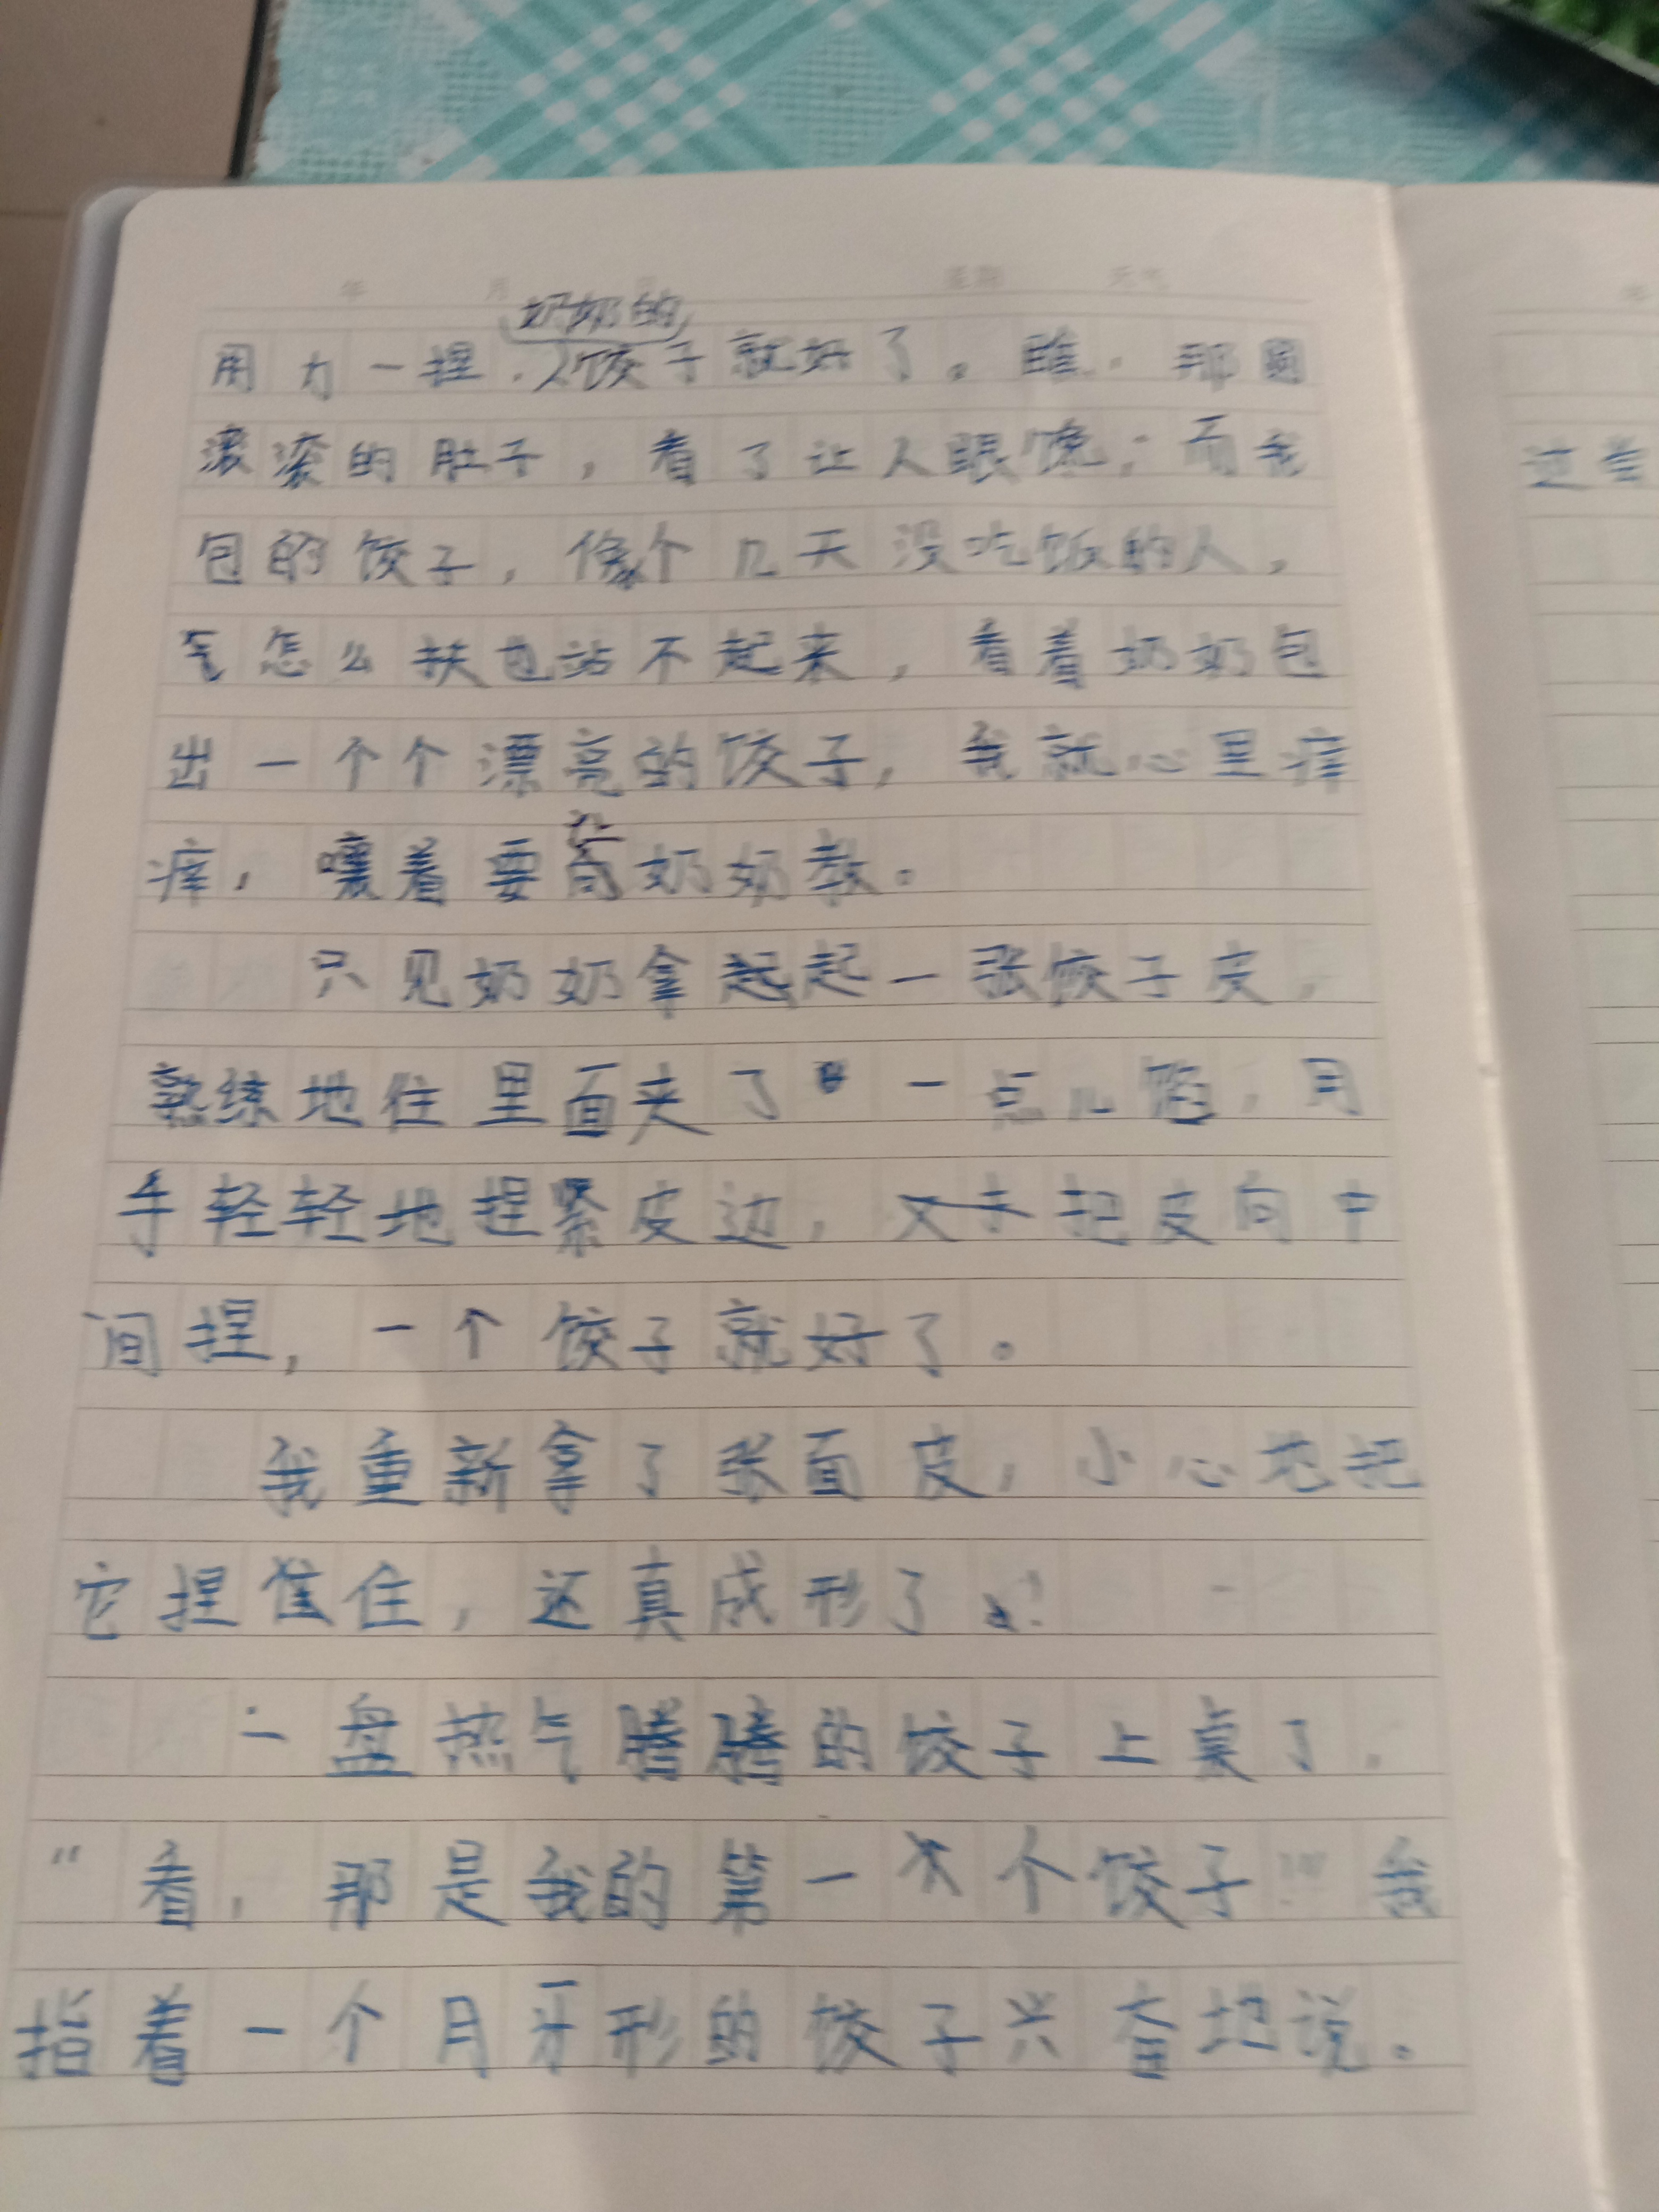 年 月 日 星期 天气
用力一捏，奶奶的饺子就好了。瞧，那圆
滚滚的肚子，看了让人眼馋；而我
包的饺子，像个几天没吃饭的人，
怎么扶也站不起来，看着奶奶包
出一个个漂亮的饺子，我就心里痒
痒，嚷着要让奶奶教。
只见奶奶拿起一张饺子皮，
熟练地住里面夹了一点儿馅，用
手轻轻地捏紧皮边，又把皮向中
间捏，一个饺子就好了。
我重新拿了张面皮，小心地把
它捏住，还真成形了！
一盘热气腾腾的饺子上桌了，
“看，那是我的第一个饺子！”我
指着一个月牙形的饺子兴奋地说。